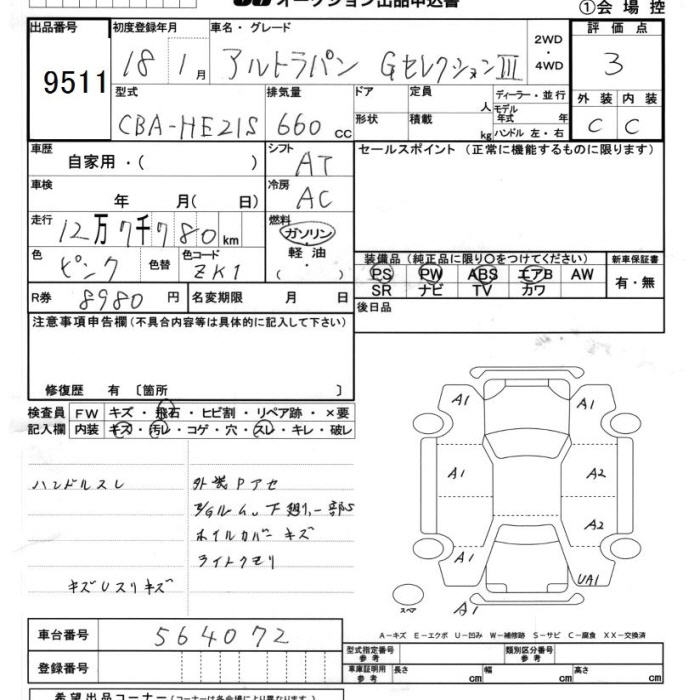 オークション出品申込書
①会場控
出品番号 初度登録年月 車名・グレード 評価点
9511 18 1月 アルトラパン GセレクションIII 2WD・4WD 3
型式 排気量 ドア 定員 人 ディーラー・並行 外装 内装
CBA-HE21S 660 cc 形状 積載 kg モデル年式 年 ハンドル 左・右 C C
車歴 自家用・( ) シフト AT セールスポイント (正常に機能するものに限ります)
車検 年 月( 日) 冷房 AC
走行 12万7千780km 燃料 ガソリン・軽油・( )
色 ピンク 色替 色コード ZK1
装備品(純正品に限り○をつけてください) 新車保証書
PS PW ABS エアB AW 有・無
SR ナビ TV カワ
R券 8980円 名変期限 月 日 後日品
注意事項申告欄(不具合内容等は具体的に記入して下さい)
修復歴 有 〔箇所 〕
検査員 FW キズ・飛石・ヒビ割・リペア跡・×要
記入欄 内装 キズ・汚レ・コゲ・穴・スレ・キレ・破レ
ハンドルスレ 外装Pアセ
下廻り一部S
ホイルカバーキズ
ライトクモリ
キズUスリキズ
A1 A1
A1 A2
A2
A1 UA1
スペア A1
A-キズ E-エクボ U-凹み W-補修跡 S-サビ C-腐食 XX-交換済
車台番号 564072
型式指定番号 参考 類別区分番号 参考
登録番号 車庫証明用 参考 長さ cm 幅 cm 高さ cm
希望出品コーナー(コーナーは各会場により異なります)